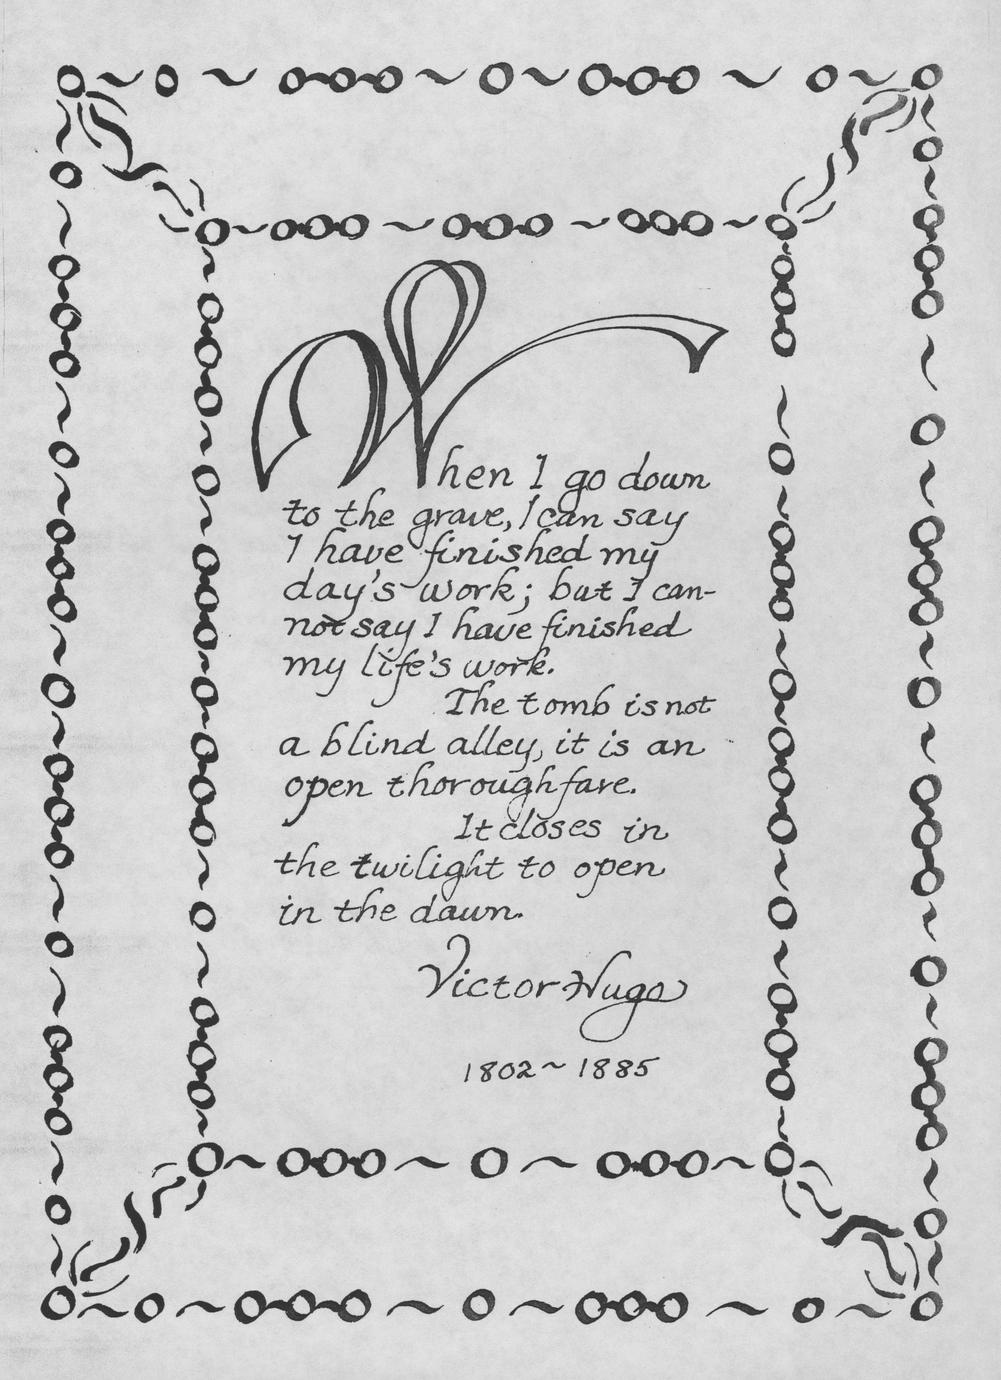 When I go down
to the grave, I can say
I have finished my
day's work; but I can-
not say I have finished
my life's work.
The tomb is not
a blind alley, it is an
open thoroughfare.
It closes in
the twilight to open
in the dawn.
Victor Hugo
1802~1885